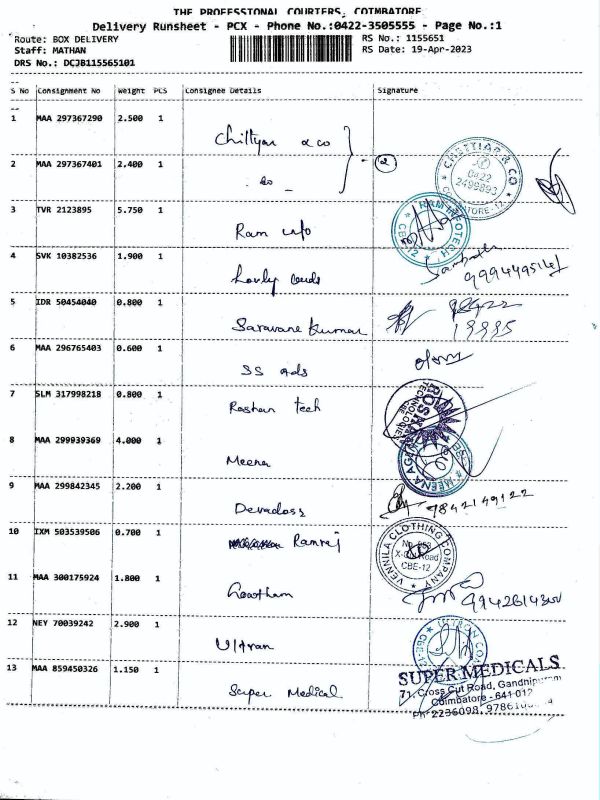 THE PROFESSIONAL COURIERS, COIMBATORE
Delivery Runsheet - PCX - Phone No.:0422-3505555 - Page No.:1
Route: BOX DELIVERY RS No.: 1155651
Staff: MATHAN RS Date: 19-Apr-2023
DRS No.: DCJB115565101
S No Consignment No Weight PCS Consignee Details Signature
1 MAA 297367290 2.500 1 Chittyar & co
2 MAA 297367401 2.400 1 do 2
CHETTIAR & CO
0422
2499893
COIMBATORE-12
3 TVR 2123895 5.750 1 Ram info
RAM INFOTECH
CBE-12
4 SVK 10382536 1.900 1
5 IDR 50454040 0.800 1 Saravana Kumar
6 MAA 296765403 0.600 1 SS ads
7 SLM 317998218 0.800 1 Roshan tech
8 MAA 299939369 4.000 1 Meena
MEENA
9 MAA 299842345 2.200 1 Devadoss 9842149122
10 IXM 503539506 0.700 1 Ramraj
VENNILA CLOTHING COMPANY
CBE-12
11 MAA 300175924 1.800 1 Gowtham
12 NEY 70039242 2.900 1 Ultran
CBE-12
13 MAA 859450326 1.150 1 Super Medical
SUPER MEDICALS
71, Cross Cut Road, Gandhipuram
Coimbatore - 641 012
Ph 2236098,